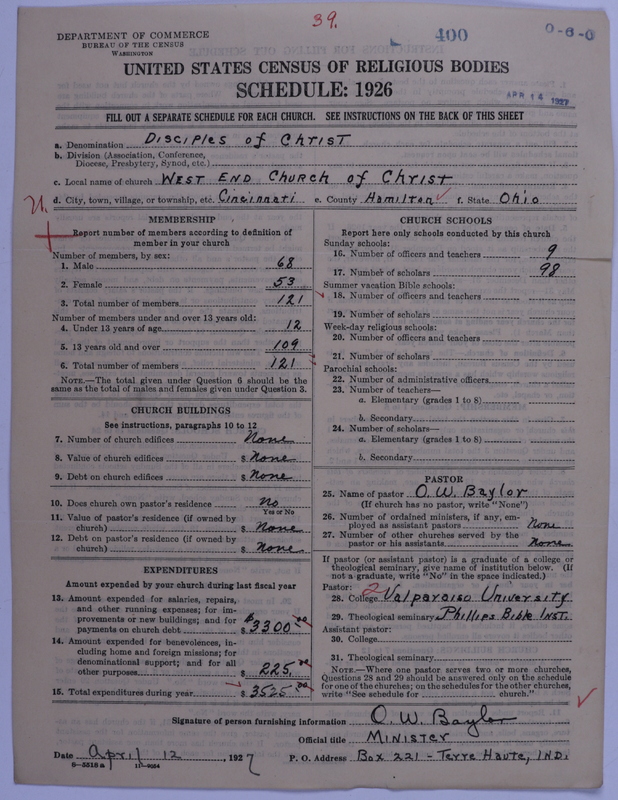 39.
DEPARTMENT OF COMMERCE
BUREAU OF THE CENSUS
WASHINGTON
400
0-6-0
UNITED STATES CENSUS OF RELIGIOUS BODIES
SCHEDULE: 1926
APR 14 1927
FILL OUT A SEPARATE SCHEDULE FOR EACH CHURCH. SEE INSTRUCTIONS ON THE BACK OF THIS SHEET
a. Denomination Disciples of Christ
b. Division (Association, Conference,
Diocese, Presbytery, Synod, etc.)
c. Local name of church West End Church of Christ
d. City, town, village, or township, etc. Cincinnati e. County Hamilton f. State Ohio
MEMBERSHIP
Report number of members according to definition of
member in your church
Number of members, by sex:
1. Male 68
2. Female 53
3. Total number of members 121
Number of members under and over 13 years old:
4. Under 13 years of age 12
5. 13 years old and over 109
6. Total number of members 121
NOTE.—The total given under Question 6 should be the
same as the total of males and females given under Question 3.
CHURCH BUILDINGS
See instructions, paragraphs 10 to 12
7. Number of church edifices None
8. Value of church edifices $ None
9. Debt on church edifices $ None
10. Does church own pastor's residence No
Yes or No
11. Value of pastor's residence (if owned by
church) $ None
12. Debt on pastor's residence (if owned by
church) $ None
EXPENDITURES
Amount expended by your church during last fiscal year
13. Amount expended for salaries, repairs,
and other running expenses; for im-
provements or new buildings; and for
payments on church debt $ 3300.00
14. Amount expended for benevolences, in-
cluding home and foreign missions; for
denominational support; and for all
other purposes $ 225.00
15. Total expenditures during year $ 3525.00
CHURCH SCHOOLS
Report here only schools conducted by this church
Sunday schools:
16. Number of officers and teachers 9
17. Number of scholars 98
Summer vacation Bible schools:
18. Number of officers and teachers
19. Number of scholars
Week-day religious schools:
20. Number of officers and teachers
21. Number of scholars
Parochial schools:
22. Number of administrative officers
23. Number of teachers—
a. Elementary (grades 1 to 8)
b. Secondary
24. Number of scholars—
a. Elementary (grades 1 to 8)
b. Secondary
PASTOR
25. Name of pastor O. W. Baylor
(If church has no pastor, write "None")
26. Number of ordained ministers, if any, em-
ployed as assistant pastors None
27. Number of other churches served by the
pastor or his assistants None
If pastor (or assistant pastor) is a graduate of a college or
theological seminary, give name of institution below. (If
not a graduate, write "No" in the space indicated.)
Pastor:
28. College Valparaiso University
29. Theological seminary Phillips Bible Inst.
Assistant pastor:
30. College
31. Theological seminary
NOTE.—Where one pastor serves two or more churches,
Questions 28 and 29 should be answered only on the schedule
for one of the churches; on the schedules for the other churches,
write "See schedule for church."
Signature of person furnishing information O. W. Baylor
Official title Minister
Date April 12, 1927 P. O. Address Box 221 - Terre Haute, IND.
8-5518 a